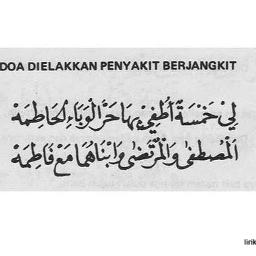 DOA DIELAKKAN PENYAKIT BERJANGKIT
لِيْ خَمْسَةٌ أُطْفِيْ بِهَا حَرَّ الْوَبَاءِ الْحَاطِمَهْ
اَلْمُصْطَفٰى وَالْمُرْتَضٰى وَابْنَاهُمَا مَعْ فَاطِمَهْ
lirik